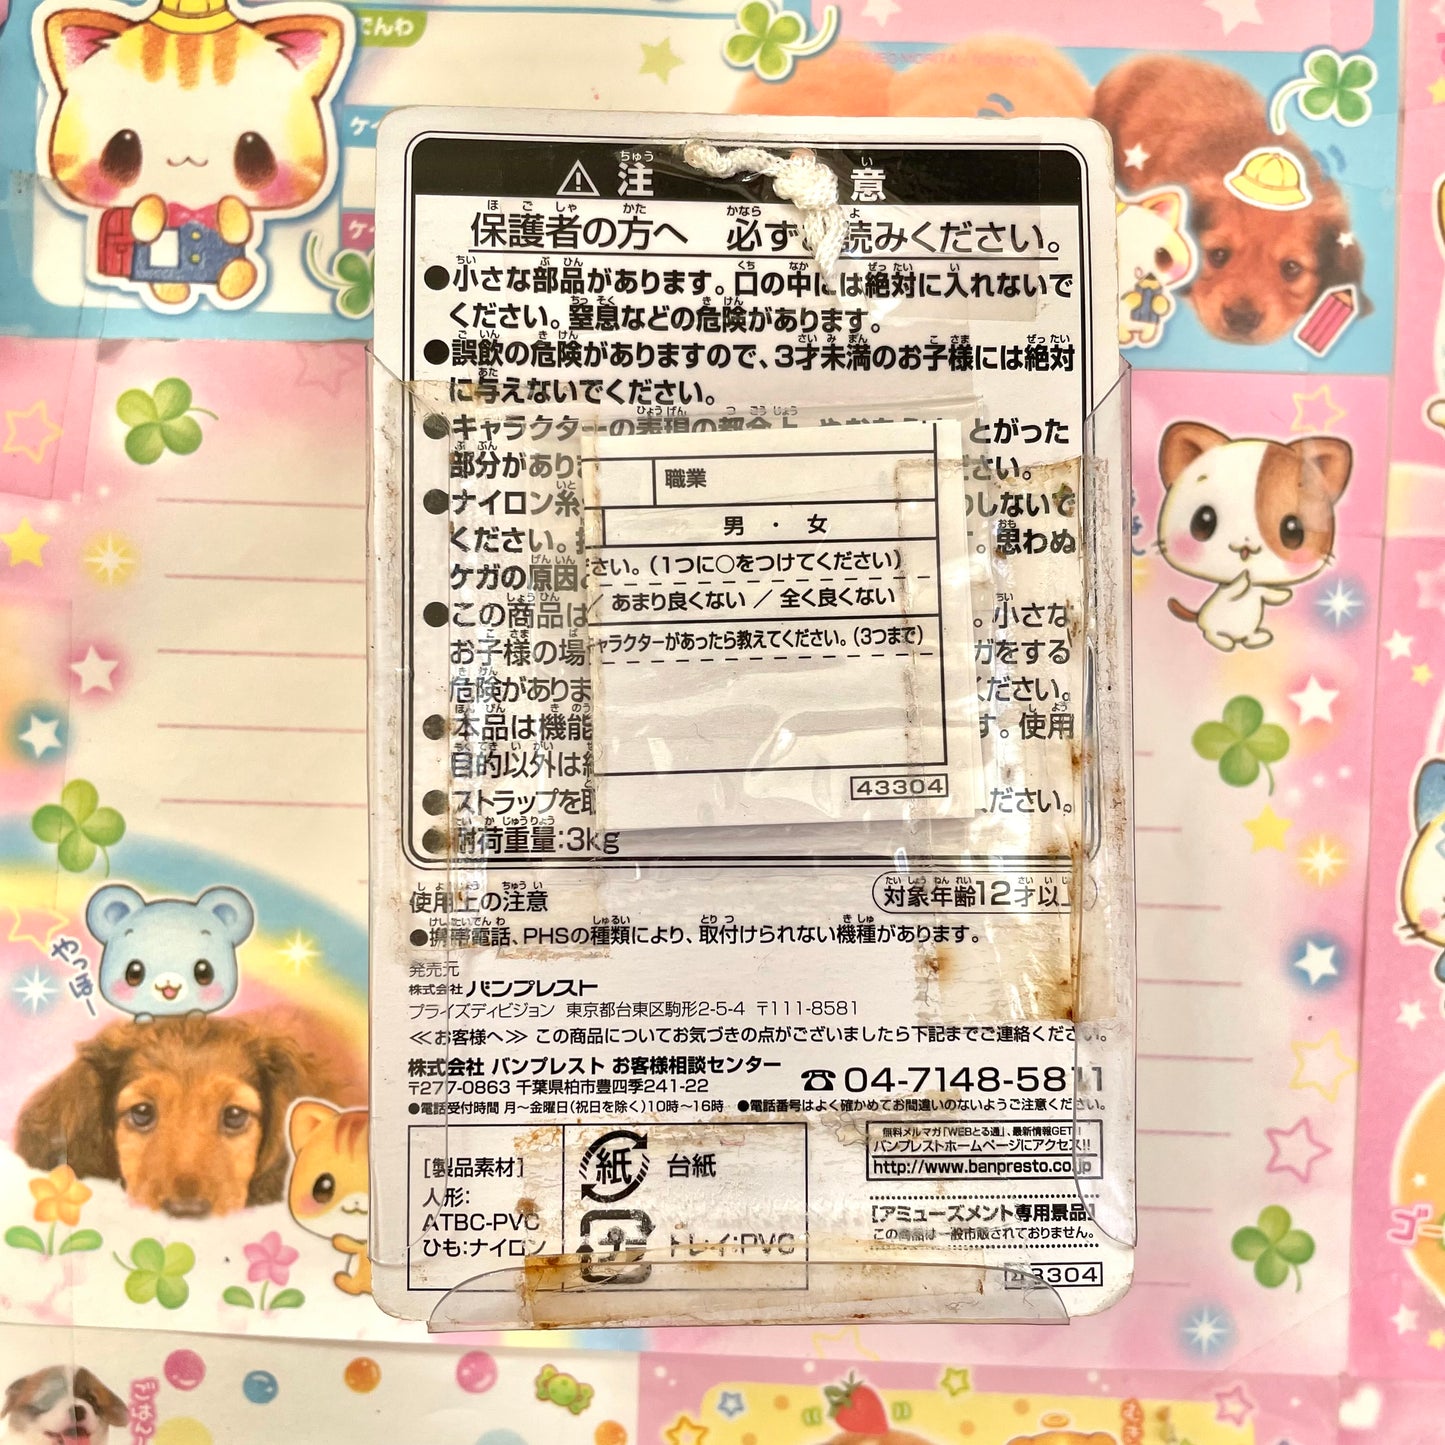 でんわ
注 意
ちゅう い
保護者の方へ 必ず 読みください。
ほ ご しゃ かた かなら よ
●小さな部品があります。口の中には絶対に入れないで
ください。窒息などの危険があります。
●誤飲の危険がありますので、3才未満のお子様には絶対
に与えないでください。
●キャラクターの表現の都合上、 とがった
部分があり さい。
●ナイロン糸 しないで
ください。 。思わぬ
ケガの原因
●この商品は 。小さな
お子様の場 ガをする
危険がありま ください。
●本品は機能 す。使用
目的以外は
●ストラップを取 ください。
●耐荷重量:3kg
職業
男 ・ 女
さい。(1つに○をつけてください)
/ あまり良くない / 全く良くない
ャラクターがあったら教えてください。(3つまで)
43304
使用上の注意
対象年齢12才以上
●携帯電話、PHSの種類により、取付けられない機種があります。
発売元
株式会社 バンプレスト
プライズディビジョン 東京都台東区駒形2-5-4 〒111-8581
≪お客様へ≫ この商品についてお気づきの点がございましたら下記までご連絡ください。
株式会社 バンプレスト お客様相談センター
〒277-0863 千葉県柏市豊四季241-22
☎04-7148-5811
●電話受付時間 月〜金曜日(祝日を除く)10時〜16時 ●電話番号はよく確かめてお間違いのないようご注意ください。
[製品素材]
人形:
ATBC-PVC
ひも:ナイロン
紙 台紙
トレイ:PVC
無料メルマガ「WEBとる通」、最新情報GET!!
バンプレストホームページにアクセス!!
http://www.banpresto.co.jp
[アミューズメント専用景品]
この商品は一般市販されておりません。
43304
やっほー